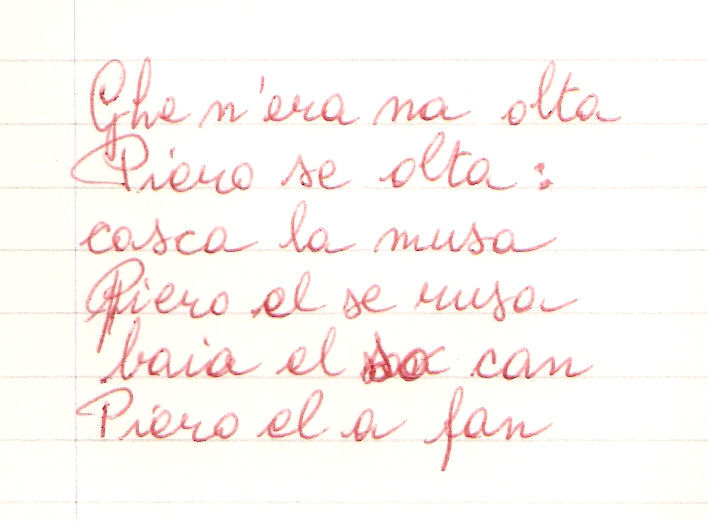 Ghe n'era na olta
Piero se olta:
casca la musa
Piero el se rusa
baia el can
Piero el a fan